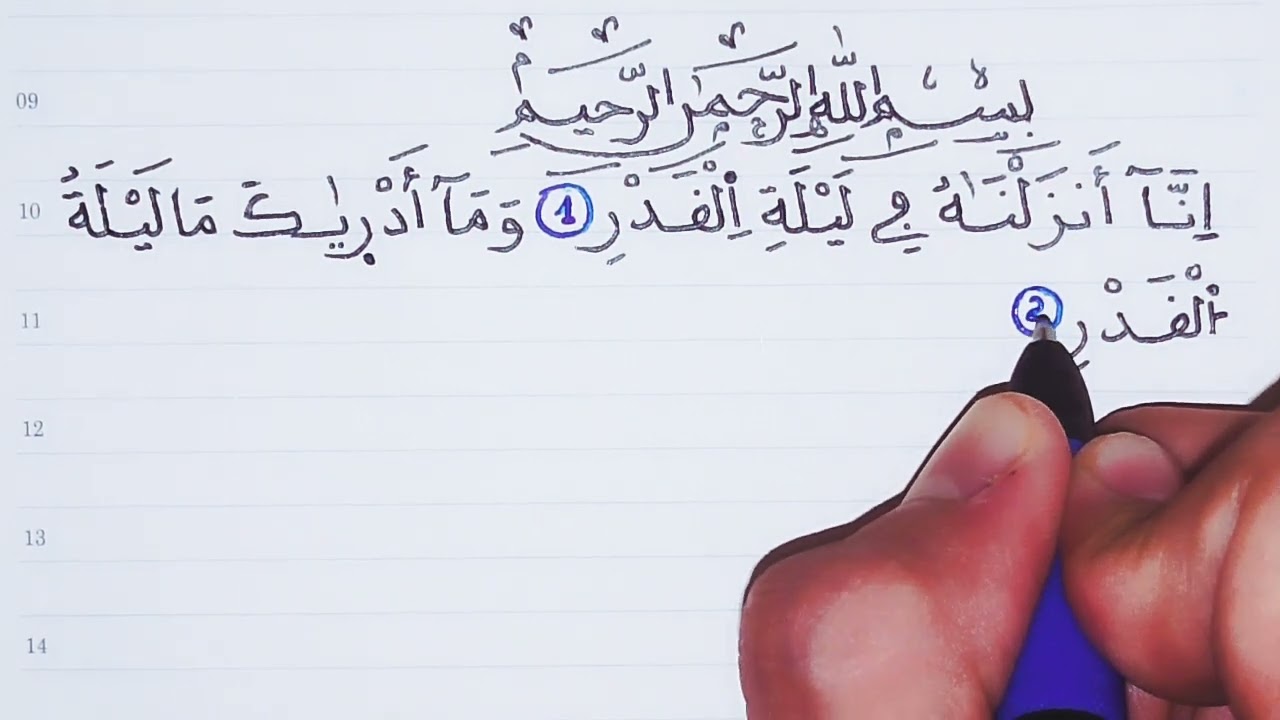 09 بِسْمِ اللَّهِ الرَّحْمَٰنِ الرَّحِيمِ
10 إِنَّآ أَنزَلْنَٰهُ فِے لَيْلَةِ اِ۬لْقَدْرِ 1 وَمَآ أَدْر۪يٰكَ مَا لَيْلَةُ
11 اُ۬لْقَدْرِ 2
12
13
14